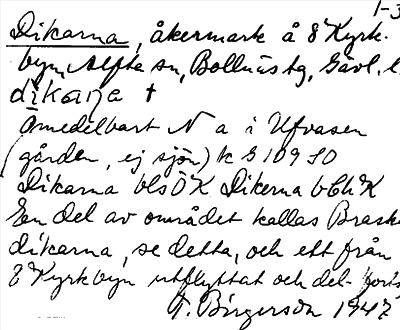 1-3
Dikarna, åkermark å 8 Kyrk-
byn, Alfta sn, Bollnäs tg, Gävl. l.
dikaṇa †
Omedelbart N a i Ufvasen
(gården, ej sjön) k S 109 SO
Dikarna bls Ö K Dikerna bCh K
En del av området kallas Brask-
dikarna, se detta, och ett från
8 Kyrkbyn utflyttat och del- forts
T. Birgerson 1947